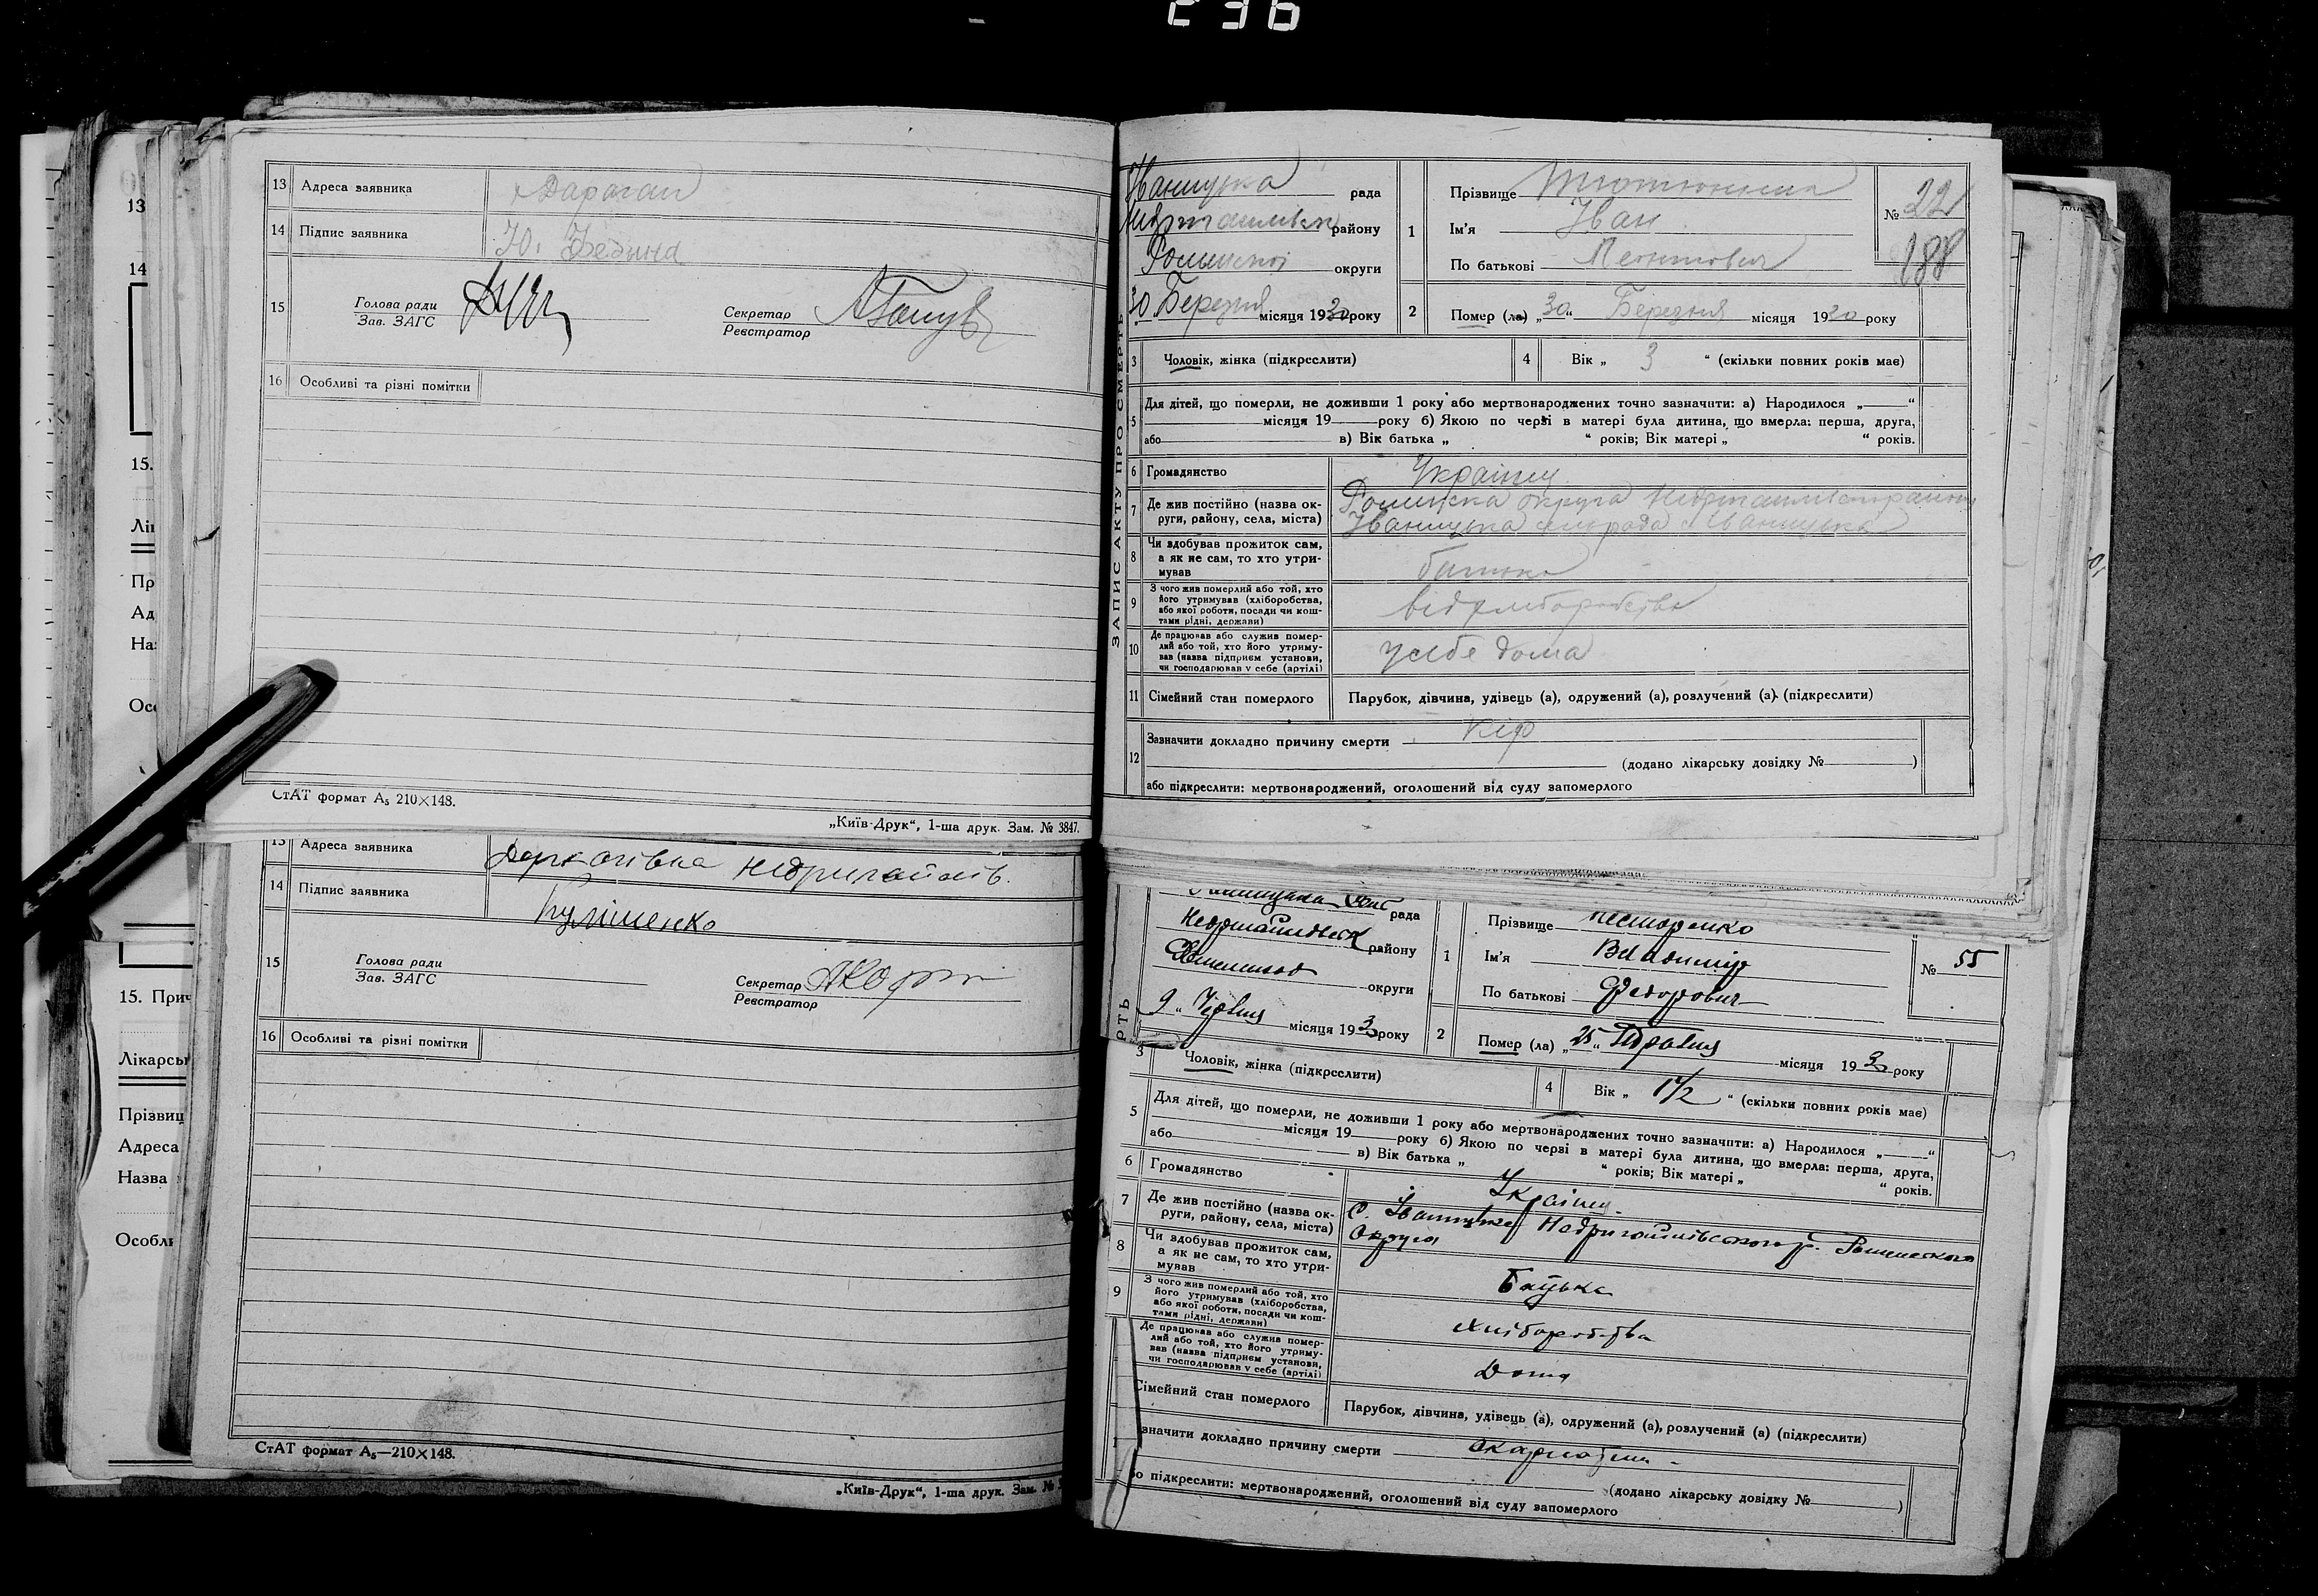 236
13 Адреса заявника
14 Підпис заявника Ю. Федина
15 Голова ради
Зав. ЗАГС
Секретар
Реєстратор
16 Особливі та різні помітки
СтАТ формат А₅ 210×148.
„Київ-Друк“, 1-ша друк. Зам. № 3847.
13 Адреса заявника
14 Підпис заявника
15 Голова ради
Зав. ЗАГС
Секретар
Реєстратор
16 Особливі та різні помітки
СтАТ формат А₅—210×148.
„Київ-Друк“, 1-ша друк. Зам. №
ЗАПИС АКТУ ПРО СМЕРТЬ
Іваницька рада
району
Роменської округи
30 Березня місяця 1930 року
1 Прізвище
Ім'я Іван
По батькові Леонтович
№ 22
188
2 Помер (ла) „30“ Березня місяця 1930 року
3 Чоловік, жінка (підкреслити)
4 Вік „ 3 “ (скільки повних років має)
5 Для дітей, що померли, не доживши 1 року або мертвонароджених точно зазначити: а) Народилося „ “
місяця 19 року б) Якою по черзі в матері була дитина, що вмерла: перша, друга,
або в) Вік батька „ “ років; Вік матері „ “ років.
6 Громадянство Українец
7 Де жив постійно (назва ок-
руги, району, села, міста)
Роменска округа
Іваницька
8 Чи здобував прожиток сам,
а як не сам, то хто утри-
мував
батько
9 З чого жив померлий або той, хто
його утримував (хліборобства,
або якої роботи, посади чи кош-
тами рідні, держави)
від хліборобства
10 Де працював або служив помер-
лий або той, хто його утриму-
вав (назва підприєм установи,
чи господарював у себе (артілі)
у себе дома
11 Сімейний стан померлого Парубок, дівчина, удівець (а), одружений (а), розлучений (а) (підкреслити)
12 Зазначити докладно причину смерти кір
(додано лікарську довідку № )
або підкреслити: мертвонароджений, оголошений від суду запомерлого
рада
району
округи
9 „ Червня місяця 193 року
1 Прізвище Нестеренко
Ім'я Владимир
По батькові Федорович
№ 55
2 Помер (ла) „25“ Травня місяця 193 року
3 Чоловік, жінка (підкреслити)
4 Вік „ 1½ “ (скільки повних років має)
5 Для дітей, що померли, не доживши 1 року або мертвонароджених точно зазначити: а) Народилося „ “
місяця 19 року б) Якою по черзі в матері була дитина, що вмерла: перша, друга,
або в) Вік батька „ “ років; Вік матері „ “ років.
6 Громадянство Українец
7 Де жив постійно (назва ок-
руги, району, села, міста)
С. Іваницька Недригайлівського р. Роменского
Округа
8 Чи здобував прожиток сам,
а як не сам, то хто утри-
мував
Батько
9 З чого жив померлий або той, хто
його утримував (хліборобства,
або якої роботи, посади чи кош-
тами рідні, держави)
хліборобства
Де працював або служив помер-
лий або той, хто його утриму-
вав (назва підприєм установи,
чи господарював у себе (артілі)
Дома
Сімейний стан померлого Парубок, дівчина, удівець (а), одружений (а), розлучений (а) (підкреслити)
значити докладно причину смерти скарлатина
(додано лікарську довідку № )
о підкреслити: мертвонароджений, оголошений від суду запомерлого
13
14
15.
Лі
Пр
Ад
На
Осо
15. Прич
Лікарсь
Прізвищ
Адреса
Назва
Особл